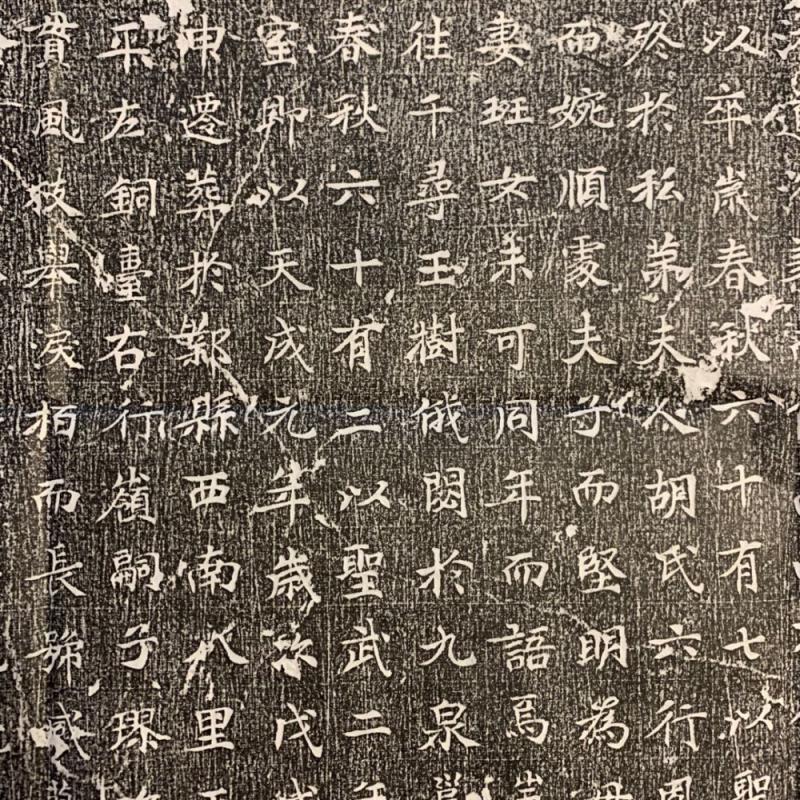 以卒歲春秋六十有七以聖
於私苐夫人胡氏六行
而婉順處夫子而堅明為母
妻班女未可同年而語焉
往千尋玉樹俄閟於九泉
春秋六十有二以聖武二年
室即以天成元年歲次戊
申遷葬於鄴縣西南八里
平左銅臺右行嶺嗣子
風枝舉淚栢而長號感